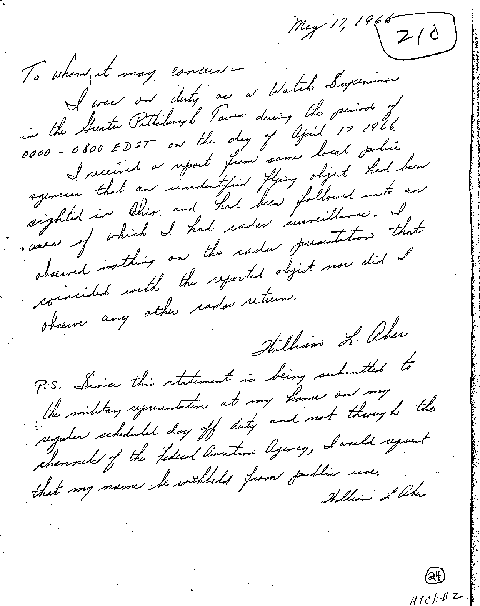 May 17, 1966
210
To whom it may concern -
I was on duty as a Watch Supervisor
in the Greater Pittsburgh Tower during the periods of
0000 - 0800 EDST on the day of April 17 1966.
I received a report from some local police
agencies that an unidentified flying object had been
sighted in Ohio and had been followed into an
area of which I had radar surveillance. I
observed nothing on the radar presentation that
coincided with the reported object nor did I
observe any other radar return.
William L. Aber
P.S. Since this statement is being submitted to
the military representative at my home on my
regular scheduled day off duty and not through the
channels of the Federal Aviation Agency, I would request
that my name be withheld from public use.
William L Aber
24